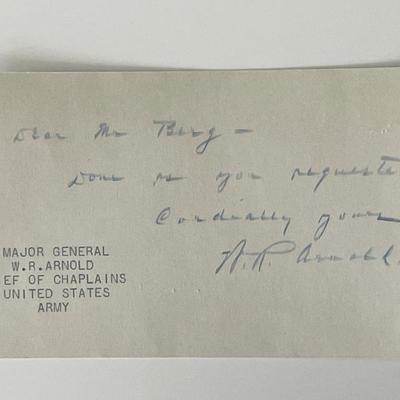 Dear Mr Berg –
Done as you requeste
Cordially yours
W. R. Arnold.
MAJOR GENERAL
W.R.ARNOLD
IEF OF CHAPLAINS
UNITED STATES
ARMY